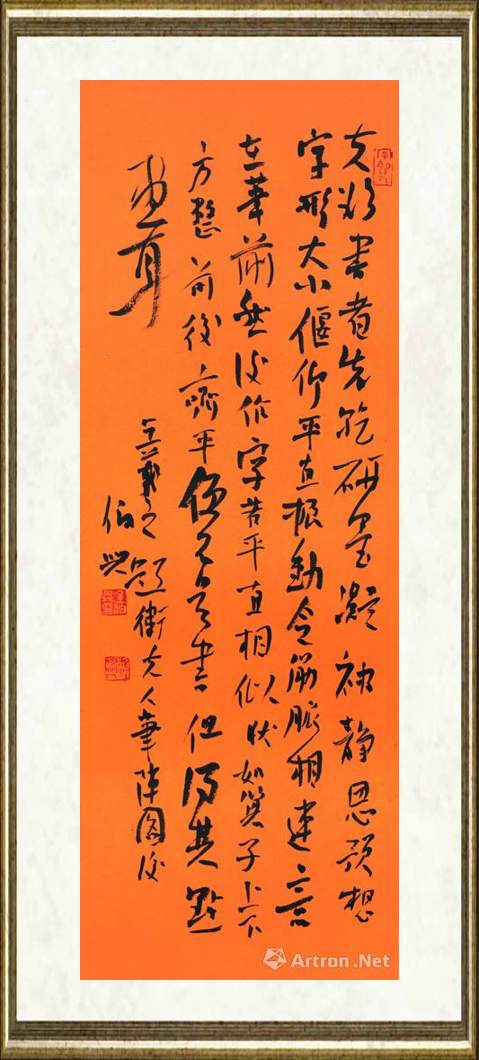 夫欲書者先乾研墨凝神静思預想
字形大小偃仰平直振動令筋脈相連意
在筆前然後作字若平直相似狀如筭子上下
方整前後齊平便不是書但得其點
畫耳
王羲之題衛夫人筆陣圖後
伯興
Artron.Net